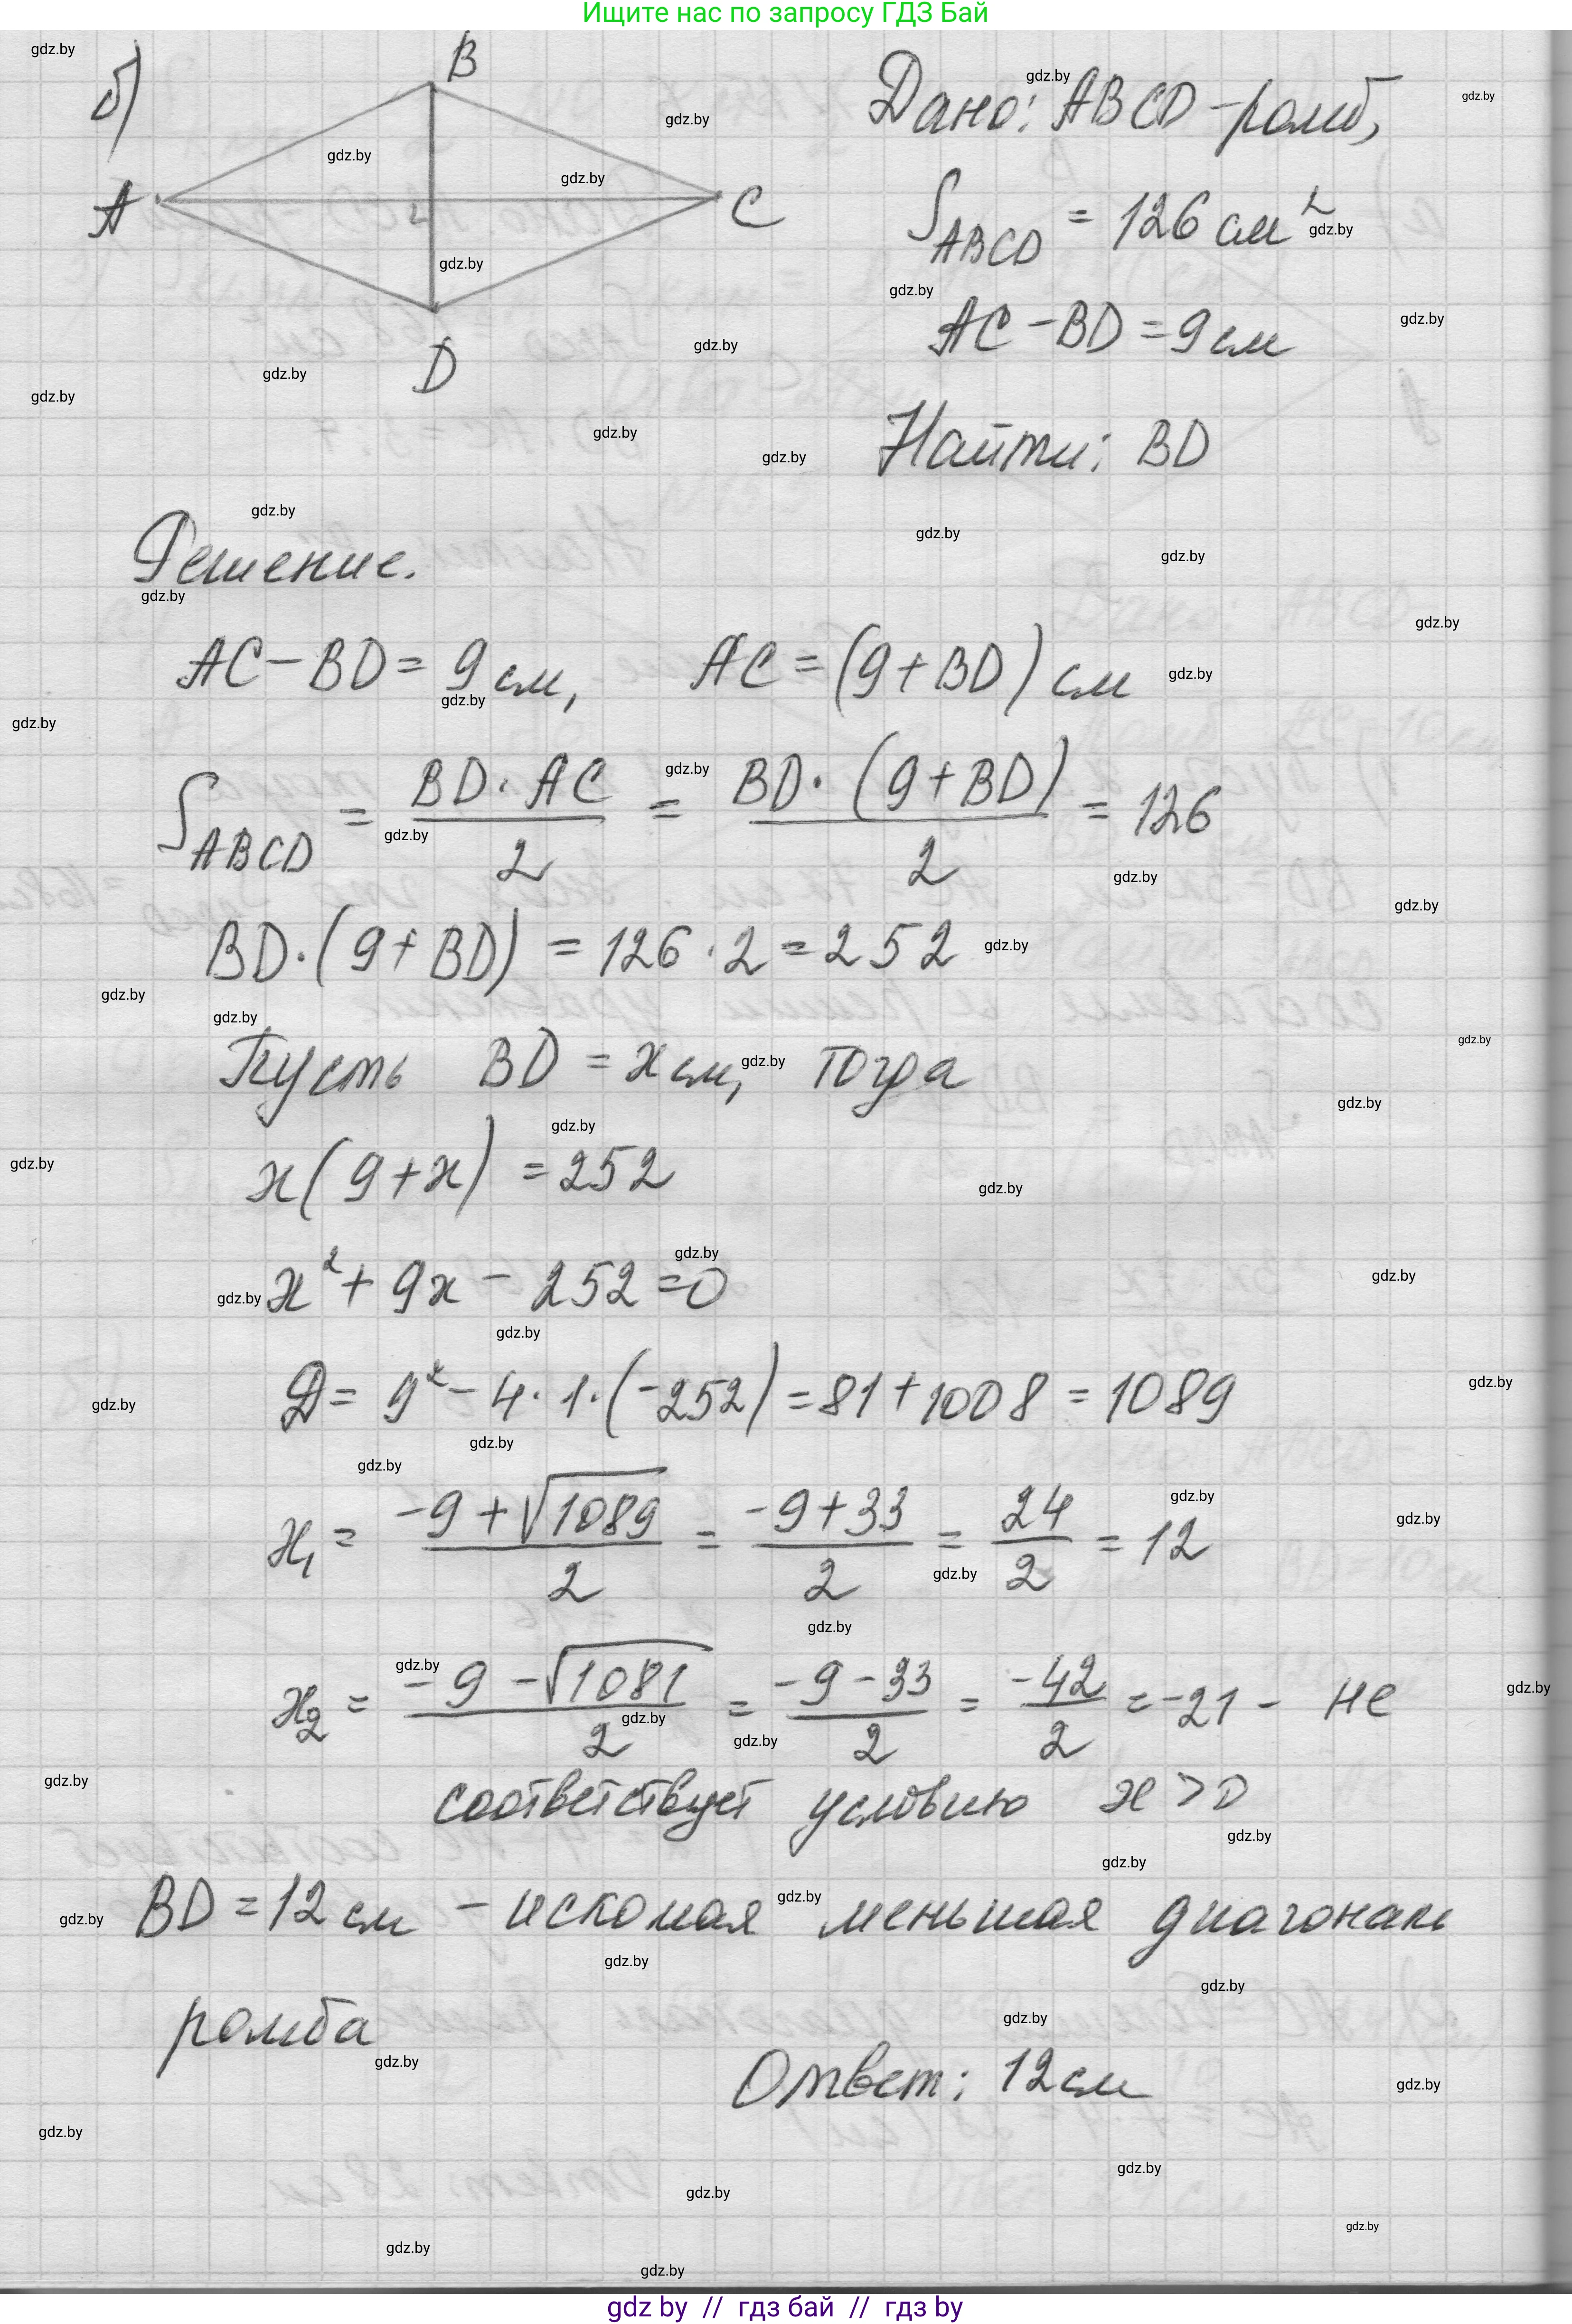 Ищите нас по запросу ГДЗ Бай
б)
B
A
C
D
Дано: ABCD - ромб,
S_ABCD = 126 см²
AC - BD = 9 см
Найти: BD
Решение.
AC - BD = 9 см, AC = (9 + BD) см
S_ABCD = BD · AC / 2 = BD · (9 + BD) / 2 = 126
BD · (9 + BD) = 126 · 2 = 252
Пусть BD = x см, тогда
x(9 + x) = 252
x² + 9x - 252 = 0
D = 9² - 4 · 1 · (-252) = 81 + 1008 = 1089
x₁ = (-9 + √1089) / 2 = (-9 + 33) / 2 = 24 / 2 = 12
x₂ = (-9 - √1081) / 2 = (-9 - 33) / 2 = -42 / 2 = -21 - не
соответствует условию x > 0
BD = 12 см - искомая меньшая диагональ
ромба
Ответ: 12 см
gdz by // гдз бай // гдз by